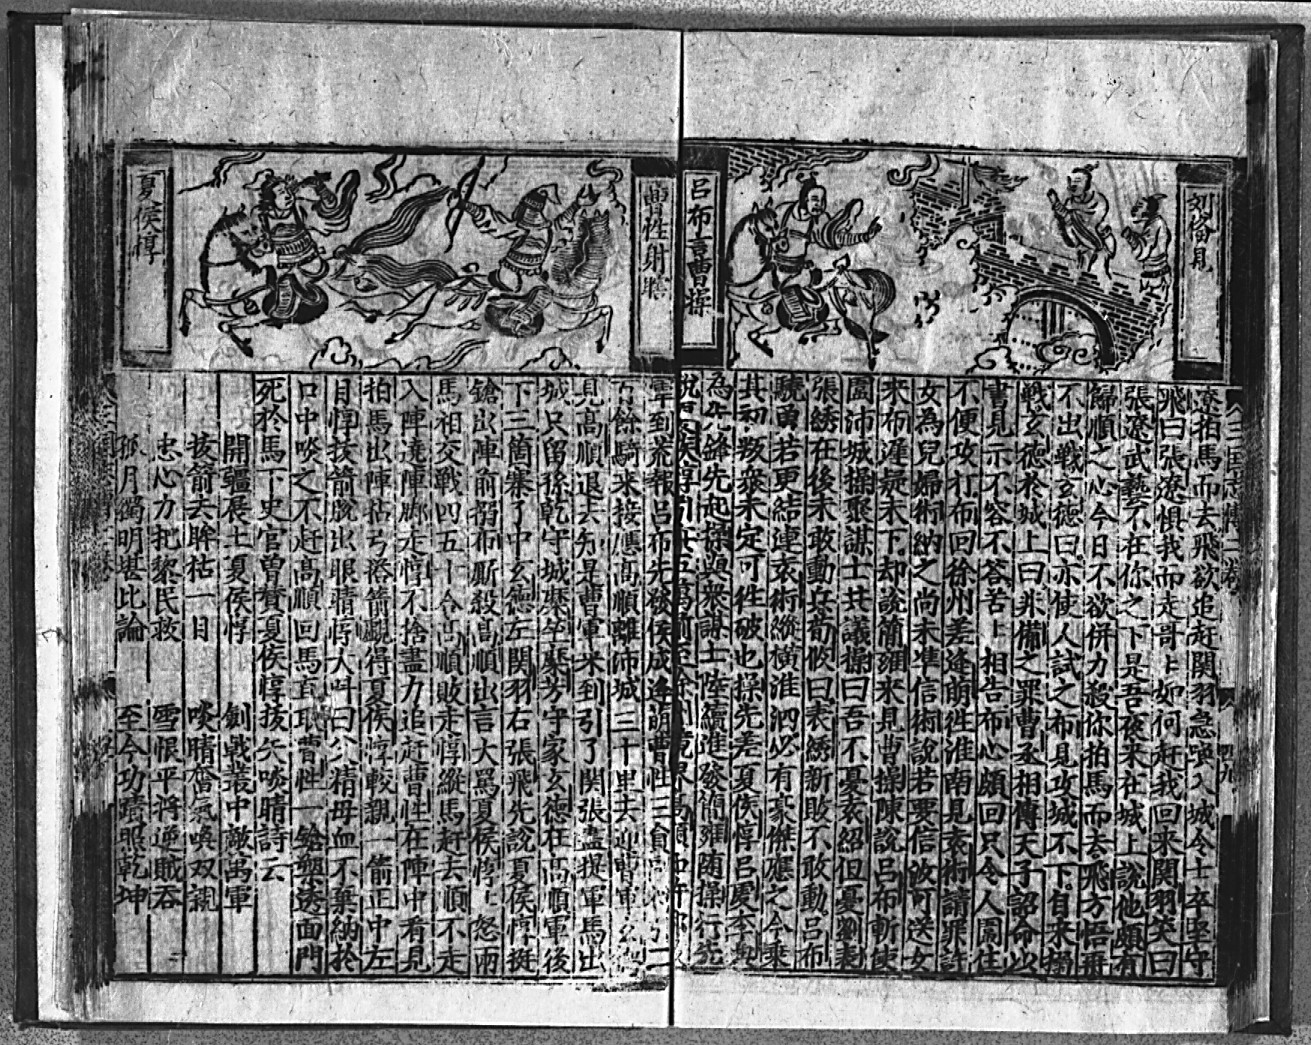 呂布言曹操
遼拍馬而去飛欲追赶関羽急喚入城令士卒堅守
飛曰張遼惧我而走哥上如何赶我回来関羽笑曰
張遼武藝不在你之下是吾夜来在城上說他頗有
歸順之心今日不欲併力殺你拍馬而去飛方悟再
不出戰玄德曰亦使人試之布見攻城不下自来搦
戰玄德於城上曰非備之罪曹丞相傳天子詔命以
書見示不容不答苦上相告布心頗回只令人圍住
不便攻打布回徐州差逢萌徃淮南見袁術請罪許
女為兒婦術納之尚未准信術說若要信汝可送女
来布遲疑未下却說簡雍来見曹操陳說呂布斬使
圍沛城操聚謀士共議操曰吾不憂袁紹但憂劉表
張綉在後未敢動兵荀攸曰表綉新敗不敢動呂布
驍勇若更結連袁術縱橫淮泗必有豪傑應之今乗
其初叛衆未定可徃破也操先差夏侯惇呂虔李典
為先鋒先起操與衆謀士陸續進發簡雍随操行先
曹性射將
夏侯惇
軍到荒報呂布先發侯成逢萌曹性三員
餘騎来接應高順離沛城三十里去迎曹軍
見高順退去知是曹軍来到引了関張盡提軍馬出
城只留孫乾守城糜竺糜芳守家玄德在高順軍後
下三箇寨了中玄德左関羽右張飛先說夏侯惇挺
鎗出陣前搦布厮殺高順出言大罵夏侯惇上怒兩
馬相交戰四五十合高順敗走惇縱馬赶去順不走
入陣遶陣脚走惇不捨盡力追赶曹性在陣中看見
拍馬出陣拈弓搭箭覷得夏侯惇較親一箭正中左
目惇拔箭脫出眼睛惇大叫曰父精母血不棄納於
口中啖之不赶高順回馬直取曹性一鎗塑透面門
死於馬下史官曽賛夏侯惇拔矢啖睛詩云
開疆展土夏侯惇　劍戟叢中敵萬軍
拔箭去眸枯一目　啖睛奮氣喚双親
忠心力扡黎民救　雪恨平將逆賊吞
孤月獨明堪比論　至今功蹟照乾坤